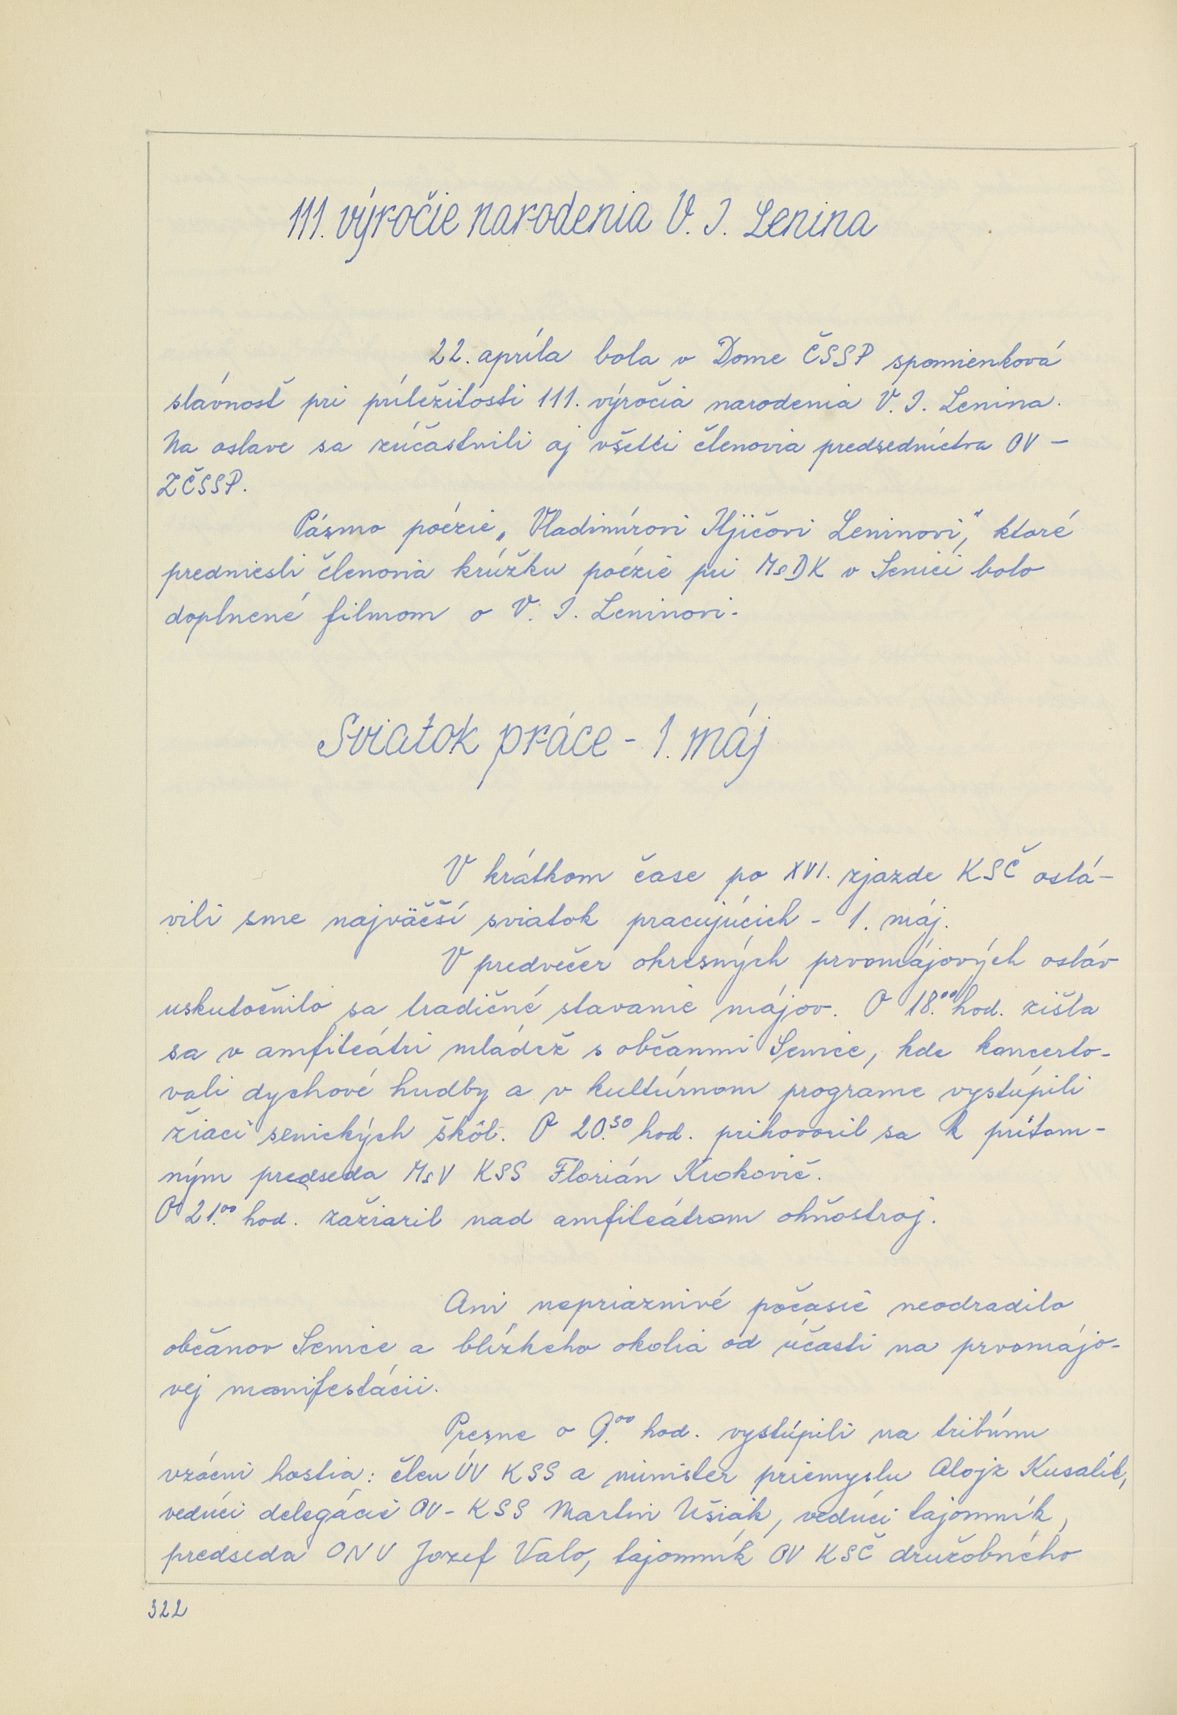 111. výročie narodenia V. I. Lenina
22. apríla bola v Dome ČSSP spomienková
slávnosť pri príležitosti 111. výročia narodenia V. I. Lenina.
Na oslave sa zúčastnili aj všetci členovia predsedníctva OV –
ZČSSP.
Pásmo poézie „Vladimírovi Iljičovi Leninovi“, ktoré
predniesli členovia krúžku poézie pri MsDK v Senici bolo
doplnené filmom o V. I. Leninovi.
Sviatok práce - 1. máj
V krátkom čase po XVI. zjazde KSČ oslá-
vili sme najväčší sviatok pracujúcich - 1. máj.
V predvečer okresných prvomájových osláv
uskutočnilo sa tradičné stavanie májov. O 18.00 hod. zišla
sa v amfiteátri mládež s občanmi Senice, kde koncerto-
vali dychové hudby a v kultúrnom programe vystúpili
žiaci senických škôl. O 20.30 hod. prihovoril sa k prítom-
ným predseda MsV KSS Florián Krokovič.
O 21.00 hod. zažiaril nad amfiteátrom ohňostroj.
Ani nepriaznivé počasie neodradilo
občanov Senice a blízkeho okolia od účasti na prvomájo-
vej manifestácii.
Presne o 9.00 hod. vystúpili na tribúnu
vzácni hostia: člen ÚV KSS a minister priemyslu Alojz Kusalík,
vedúci delegácie OV - KSS Martin Ušiak, vedúci tajomník,
predseda ONV Jozef Valo, tajomník OV KSČ družobného
322